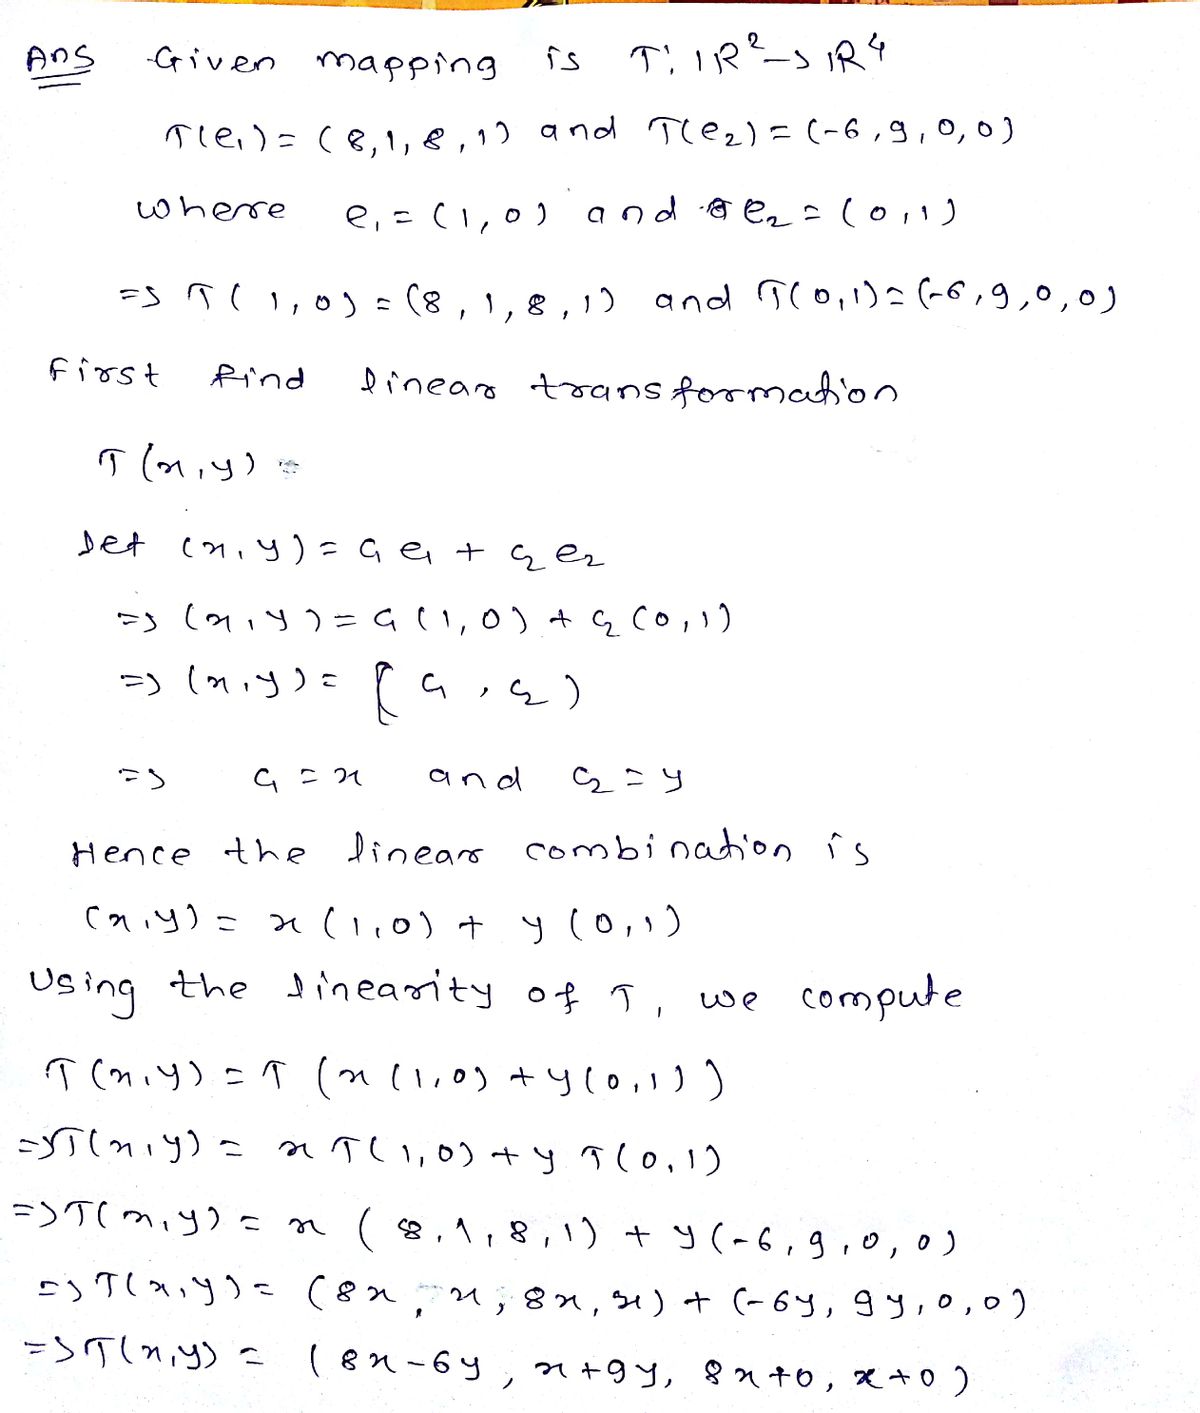 Ans Given mapping is T: IR² → IR⁴
T(e₁) = (8,1,8,1) and T(e₂) = (-6,9,0,0)
where e₁ = (1,0) and e₂ = (0,1)
=> T(1,0) = (8,1,8,1) and T(0,1) = (-6,9,0,0)
First find linear transformation
T(x,y) =
Let (x,y) = c₁e₁ + c₂e₂
=> (x,y) = c₁(1,0) + c₂(0,1)
=> (x,y) = (c₁, c₂)
=> c₁ = x and c₂ = y
Hence the linear combination is
(x,y) = x(1,0) + y(0,1)
Using the linearity of T, we compute
T(x,y) = T(x(1,0) + y(0,1))
=> T(x,y) = x T(1,0) + y T(0,1)
=> T(x,y) = x(8,1,8,1) + y(-6,9,0,0)
=> T(x,y) = (8x, x, 8x, x) + (-6y, 9y, 0, 0)
=> T(x,y) = (8x-6y, x+9y, 8x+0, x+0)